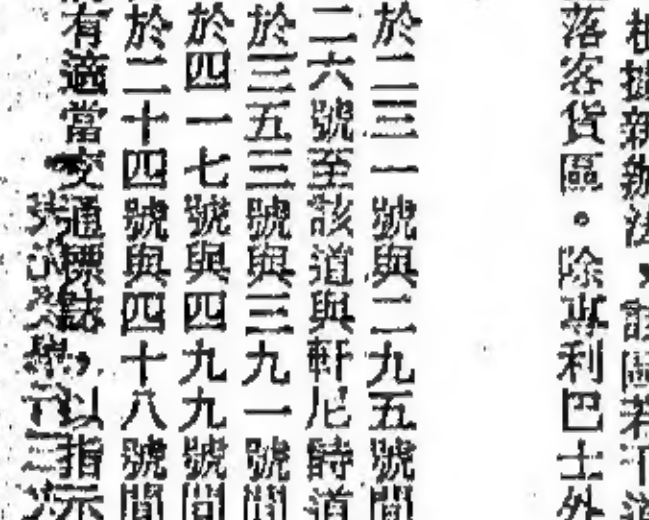 根據新辦法,該區若干道
落客貨區。除專利巴士外
於二三一號與二九五號間
二六號至該道與軒尼詩道
於三五三號與三九一號間
於四一七號與四九九號間
於二十四號與四十八號間
有適當交通標誌,以指示